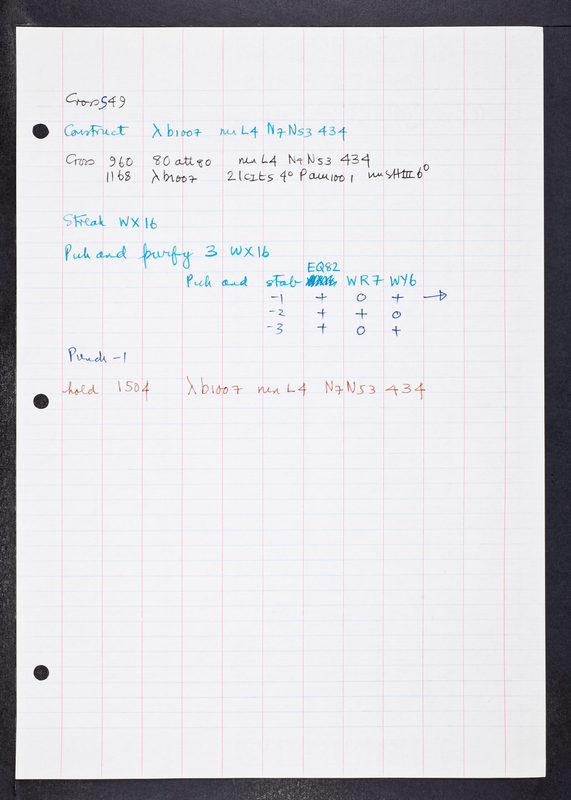 Cross 549
Construct λ b1007 nin L4 N7N53 434
Cross 960 80 att 80 nin L4 N7N53 434
1168 λ b1007 21 cIts 4° Pam1001 nin SHIII 6°
Streak WX16
Pick and purify 3 WX16
EQ82
Pick and stab WR7 WY6
-1 + 0 + →
-2 + + 0
-3 + 0 +
-1
hold 1504 λ b1007 nin L4 N7N53 434